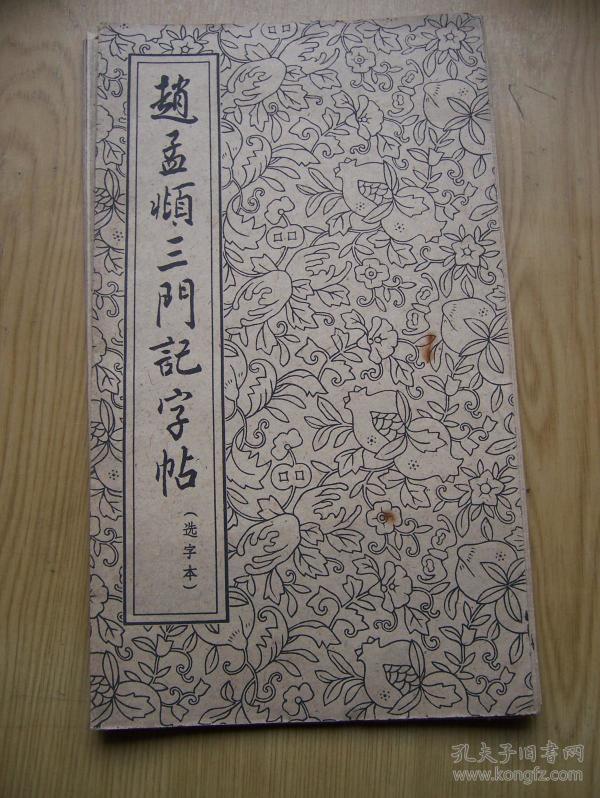 趙孟頫三門記字帖
（选字本）
孔夫子旧书网
www.kongfz.com